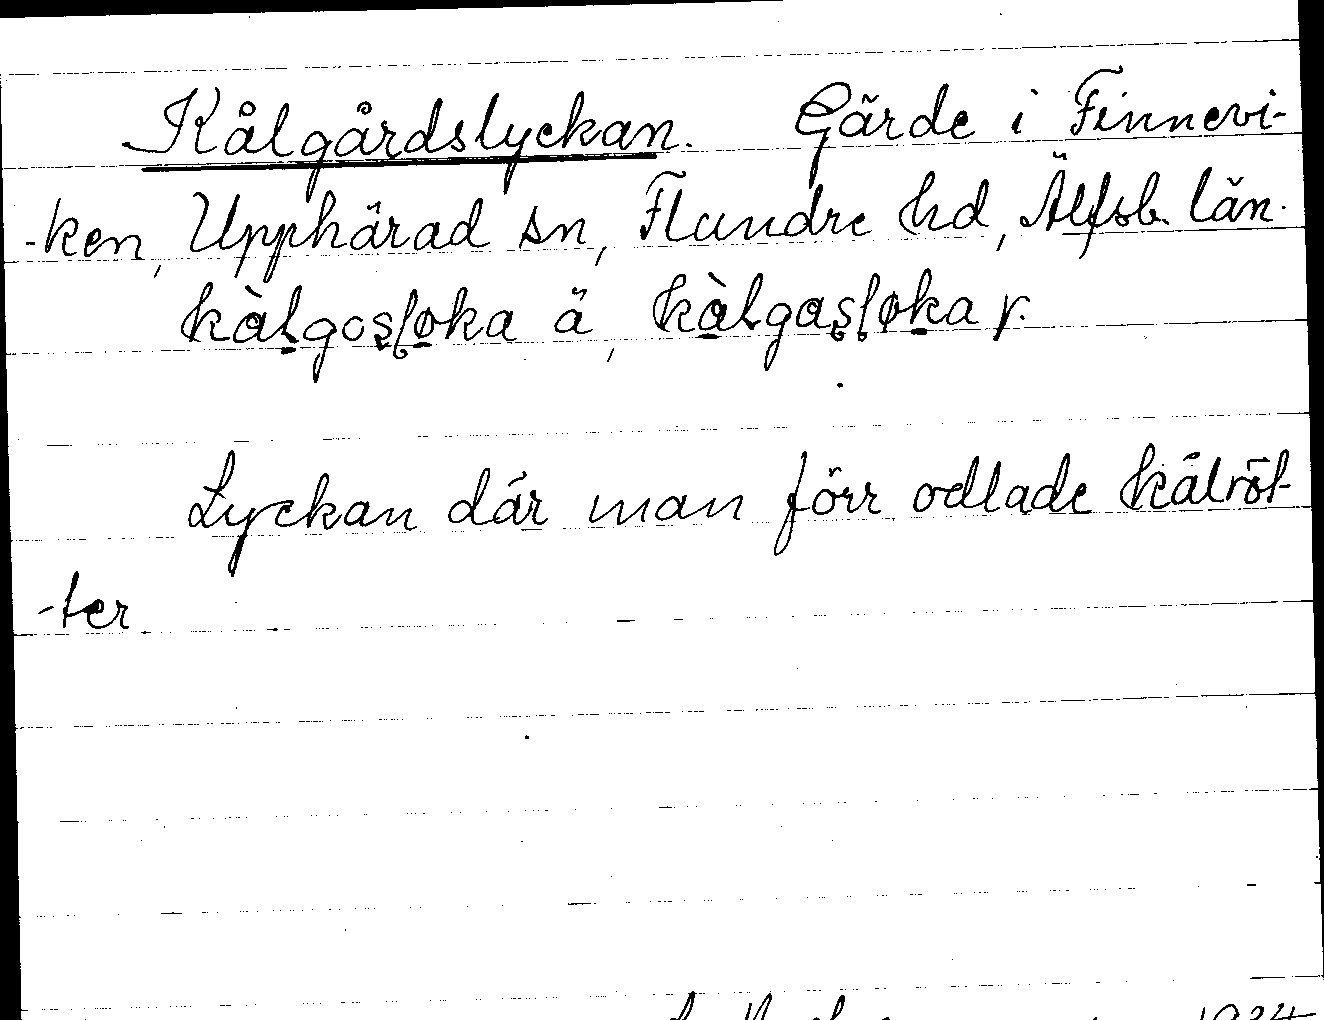 Kålgårdslyckan. Gärde i Finnevi-
-ken, Upphärad sn, Flundre hd, Älfsb. län.
kàlgosloka ä, kàlgasloka y.
Lyckan där man förr odlade kålröt-
-ter
1934